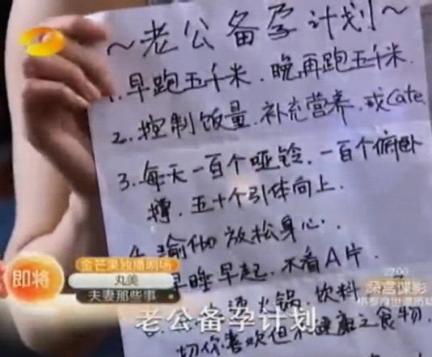 ~老公备孕计划~
1.早跑五千米.晚再跑五千米.
2.控制饭量.补充营养.戒Cafe.
3.每天一百个哑铃.一百个俯卧
撑.五十个引体向上.
4.瑜伽放松身心.
早睡早起.不看A片.
烫火锅.饮料
切你喜欢但不健康之食物.
即将
金芒果独播剧场
丸美
夫妻那些事
22:00
深宫谍影
老公备孕计划